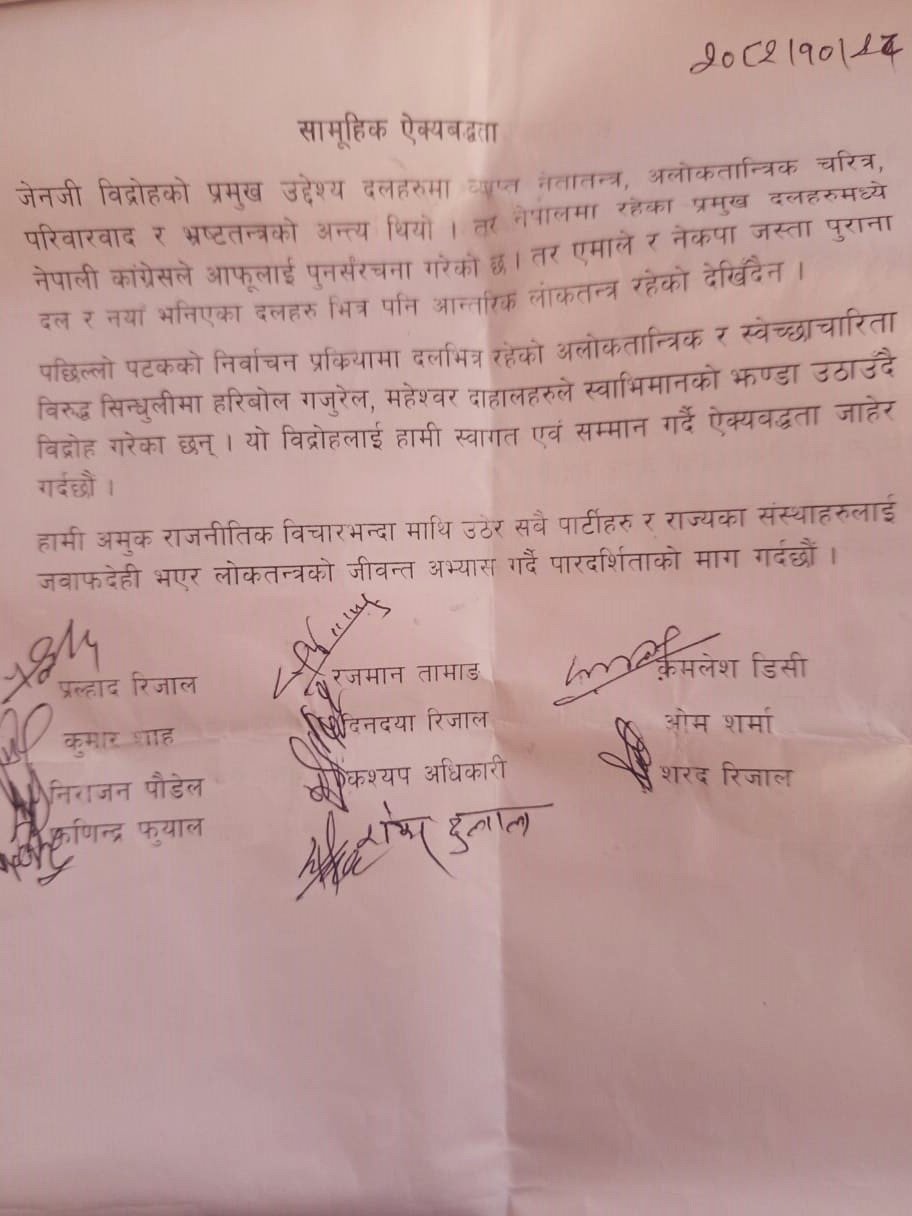 २०८२|१०|२८
सामूहिक ऐक्यबद्धता
जेनजी विद्रोहको प्रमुख उद्देश्य दलहरुमा व्याप्त नेतातन्त्र, अलोकतान्त्रिक चरित्र,
परिवारवाद र भ्रष्टतन्त्रको अन्त्य थियो । तर नेपालमा रहेका प्रमुख दलहरुमध्ये
नेपाली कांग्रेसले आफूलाई पुनर्संरचना गरेको छ । तर एमाले र नेकपा जस्ता पुराना
दल र नयाँ भनिएका दलहरु भित्र पनि आन्तरिक लोकतन्त्र रहेको देखिँदैन ।
पछिल्लो पटकको निर्वाचन प्रकियामा दलभित्र रहेको अलोकतान्त्रिक र स्वेच्छाचारिता
विरुद्ध सिन्धुलीमा हरिबोल गजुरेल, महेश्वर दाहालहरुले स्वाभिमानको झण्डा उठाउँदै
विद्रोह गरेका छन् । यो विद्रोहलाई हामी स्वागत एवं सम्मान गर्दै ऐक्यबद्धता जाहेर
गर्दछौं ।
हामी अमुक राजनीतिक विचारभन्दा माथि उठेर सवै पार्टीहरु र राज्यका संस्थाहरुलाई
जवाफदेही भएर लोकतन्त्रको जीवन्त अभ्यास गर्दै पारदर्शिताको माग गर्दछौं ।
प्रल्हाद रिजाल रजमान तामाङ कमलेश डिसी
कुमार शाह दिनदया रिजाल ओम शर्मा
निराजन पौडेल कश्यप अधिकारी शरद रिजाल
फणिन्द्र फुयाल दुलाल